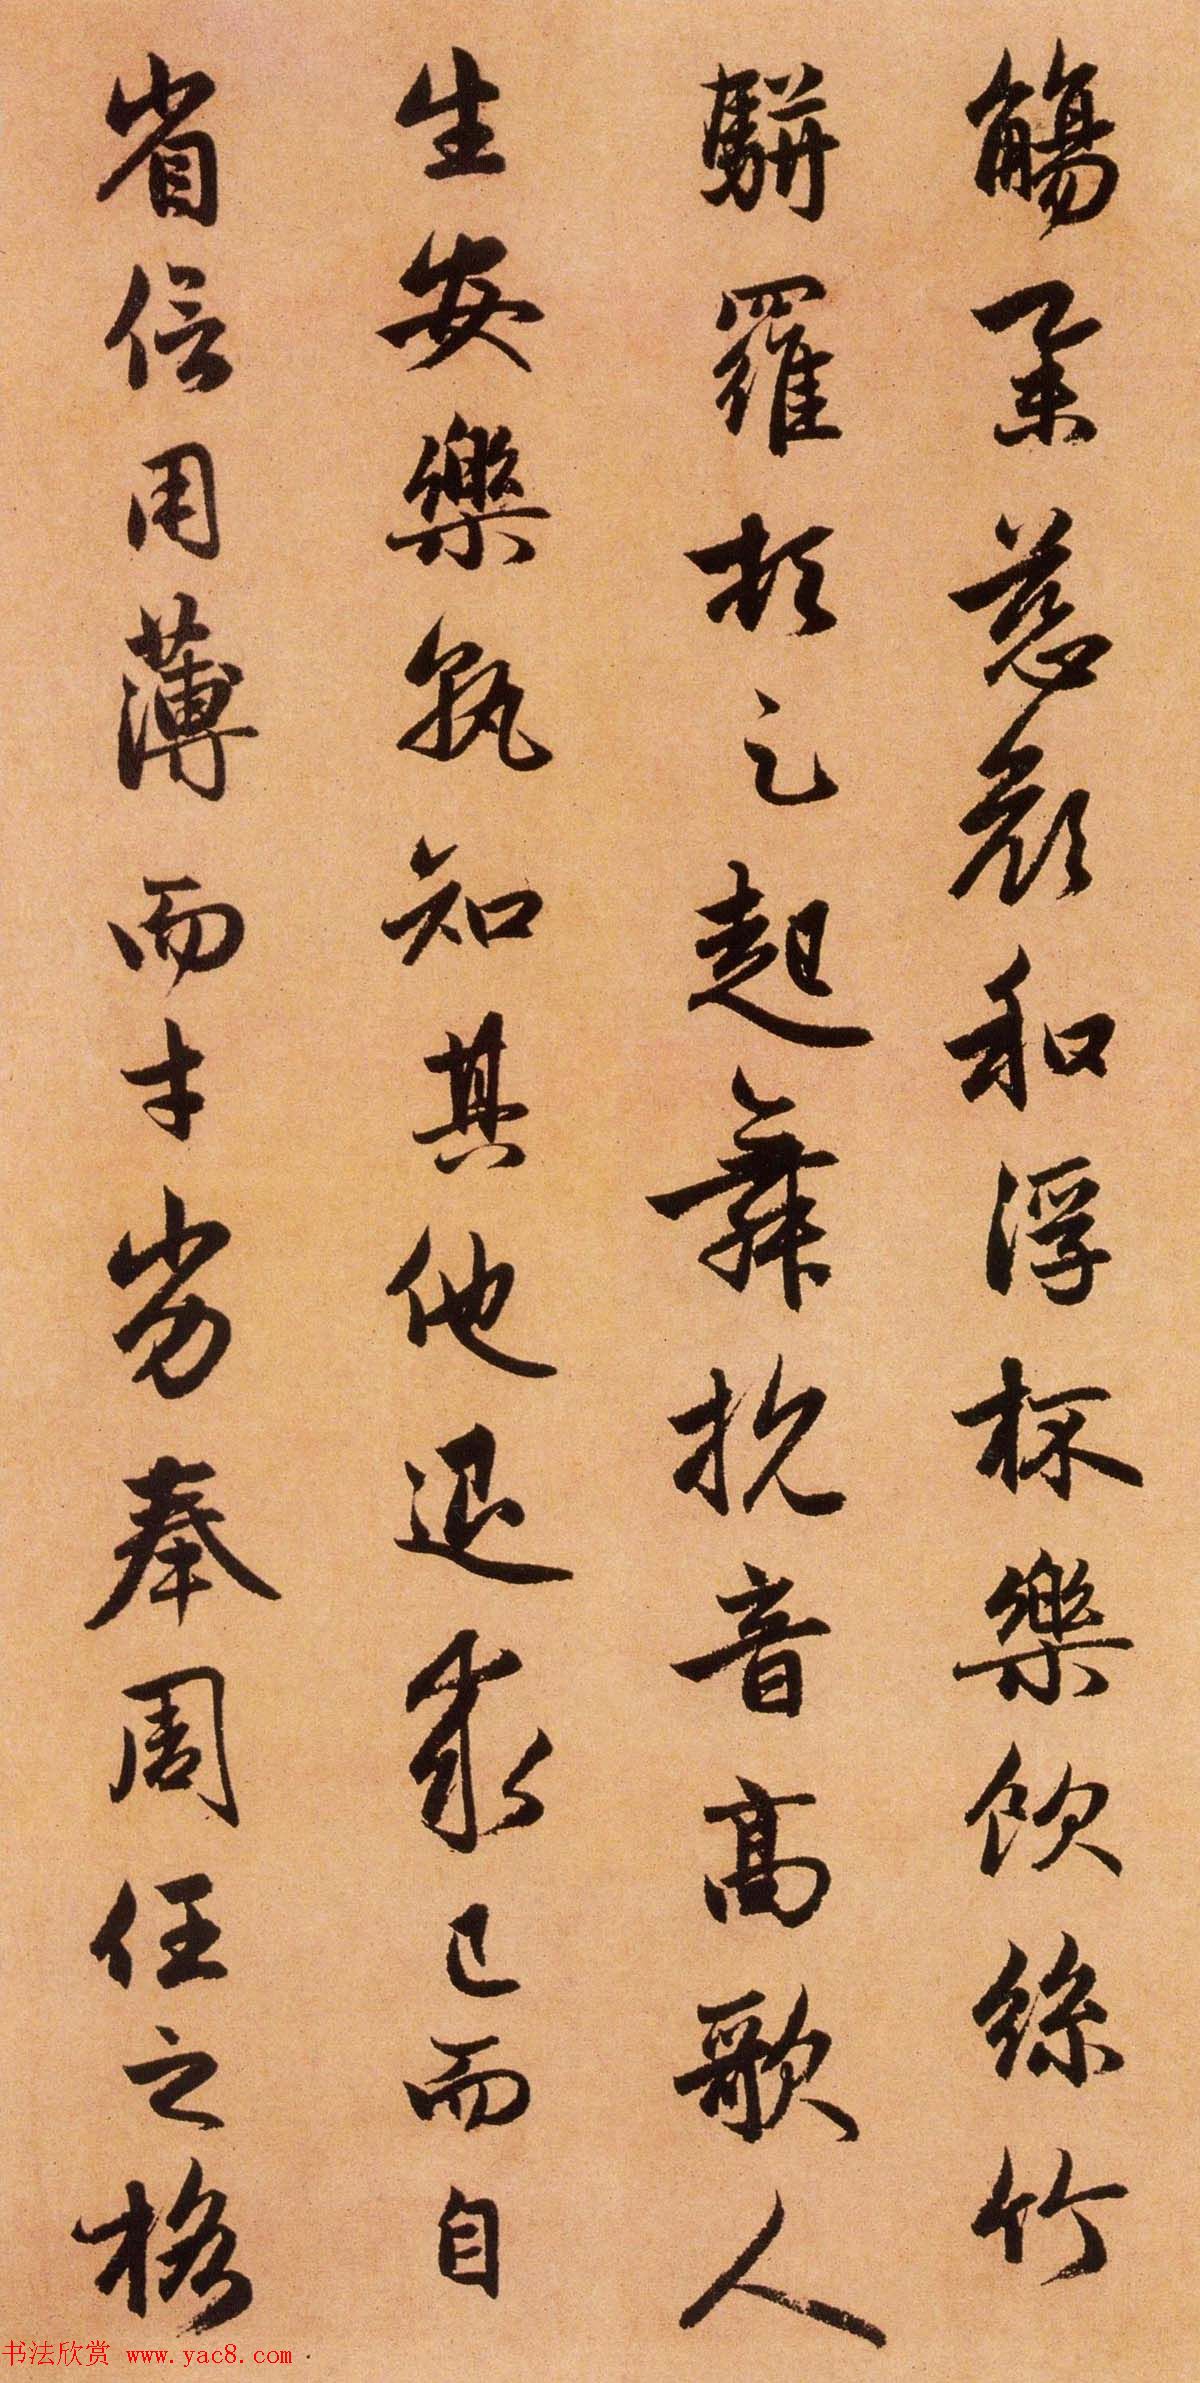 觴舉慈顏和浮杯樂飲絲竹
駢羅頓足起舞抗音高歌人
生安樂孰知其他退求己而自
省信用薄而才劣奉周任之格
书法欣赏 www.yac8.com